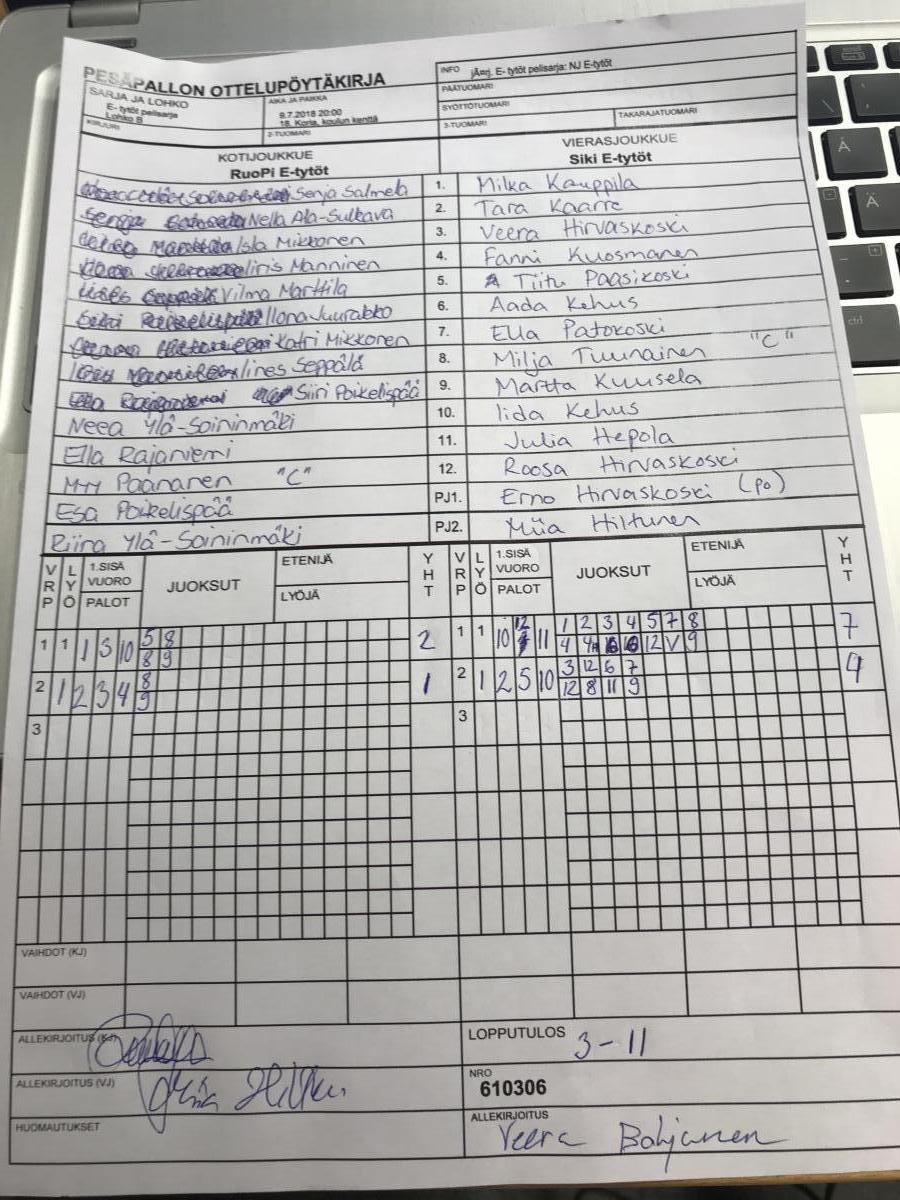 PESÄPALLON OTTELUPÖYTÄKIRJA
INFO jÄrj. E- tytöt pelisarja: NJ E-tytöt
PÄÄTUOMARI
SARJA JA LOHKO
E- tytöt pelisarja
Lohko B
AIKA JA PAIKKA
9.7.2018 20:00
18. Koria, koulun kenttä
SYÖTTÖTUOMARI
KIRJURI
2-TUOMARI
3-TUOMARI
TAKARAJATUOMARI
KOTIJOUKKUE
RuoPi E-tytöt
VIERASJOUKKUE
Siki E-tytöt
Senja Salmela 1. Milka Kauppila
Nella Ala-Sulkava 2. Tara Kaarre
Isla Mikkonen 3. Veera Hirvaskoski
Iiris Manninen 4. Fanni Kuosmanen
Vilma Marttila 5. Tiitu Paasikoski
Ilona Juurakko 6. Aada Kehus
Katri Mikkonen 7. Ella Patokoski
Iines Seppälä 8. Milja Tuunainen "C"
Siiri Poikelispää 9. Martta Kuusela
Neea Ylä-Soininmäki 10. Iida Kehus
Ella Rajaniemi 11. Julia Hepola
M-M Paananen "C" 12. Roosa Hirvaskoski
Esa Poikelispää PJ1. Erno Hirvaskoski (po)
Riina Ylä-Soininmäki PJ2. Miia Hiltunen
VRP LYÖ 1.SISÄ VUORO PALOT JUOKSUT ETENIJÄ LYÖJÄ YHT
VRP LYÖ 1.SISÄ VUORO PALOT JUOKSUT ETENIJÄ LYÖJÄ YHT
1 1 1 3 10 5 8 2
8 9
1 1 10 12 11 1 2 3 4 5 7 8 7
4 12 V 9
2 1 2 3 4 8 1
9
2 1 2 5 10 3 12 6 7 4
12 8 11 9
3
3
VAIHDOT (KJ)
VAIHDOT (VJ)
ALLEKIRJOITUS (KJ)
LOPPUTULOS 3-11
ALLEKIRJOITUS (VJ) Miia Hiltunen
NRO
610306
HUOMAUTUKSET
ALLEKIRJOITUS
Veera Bohjanen